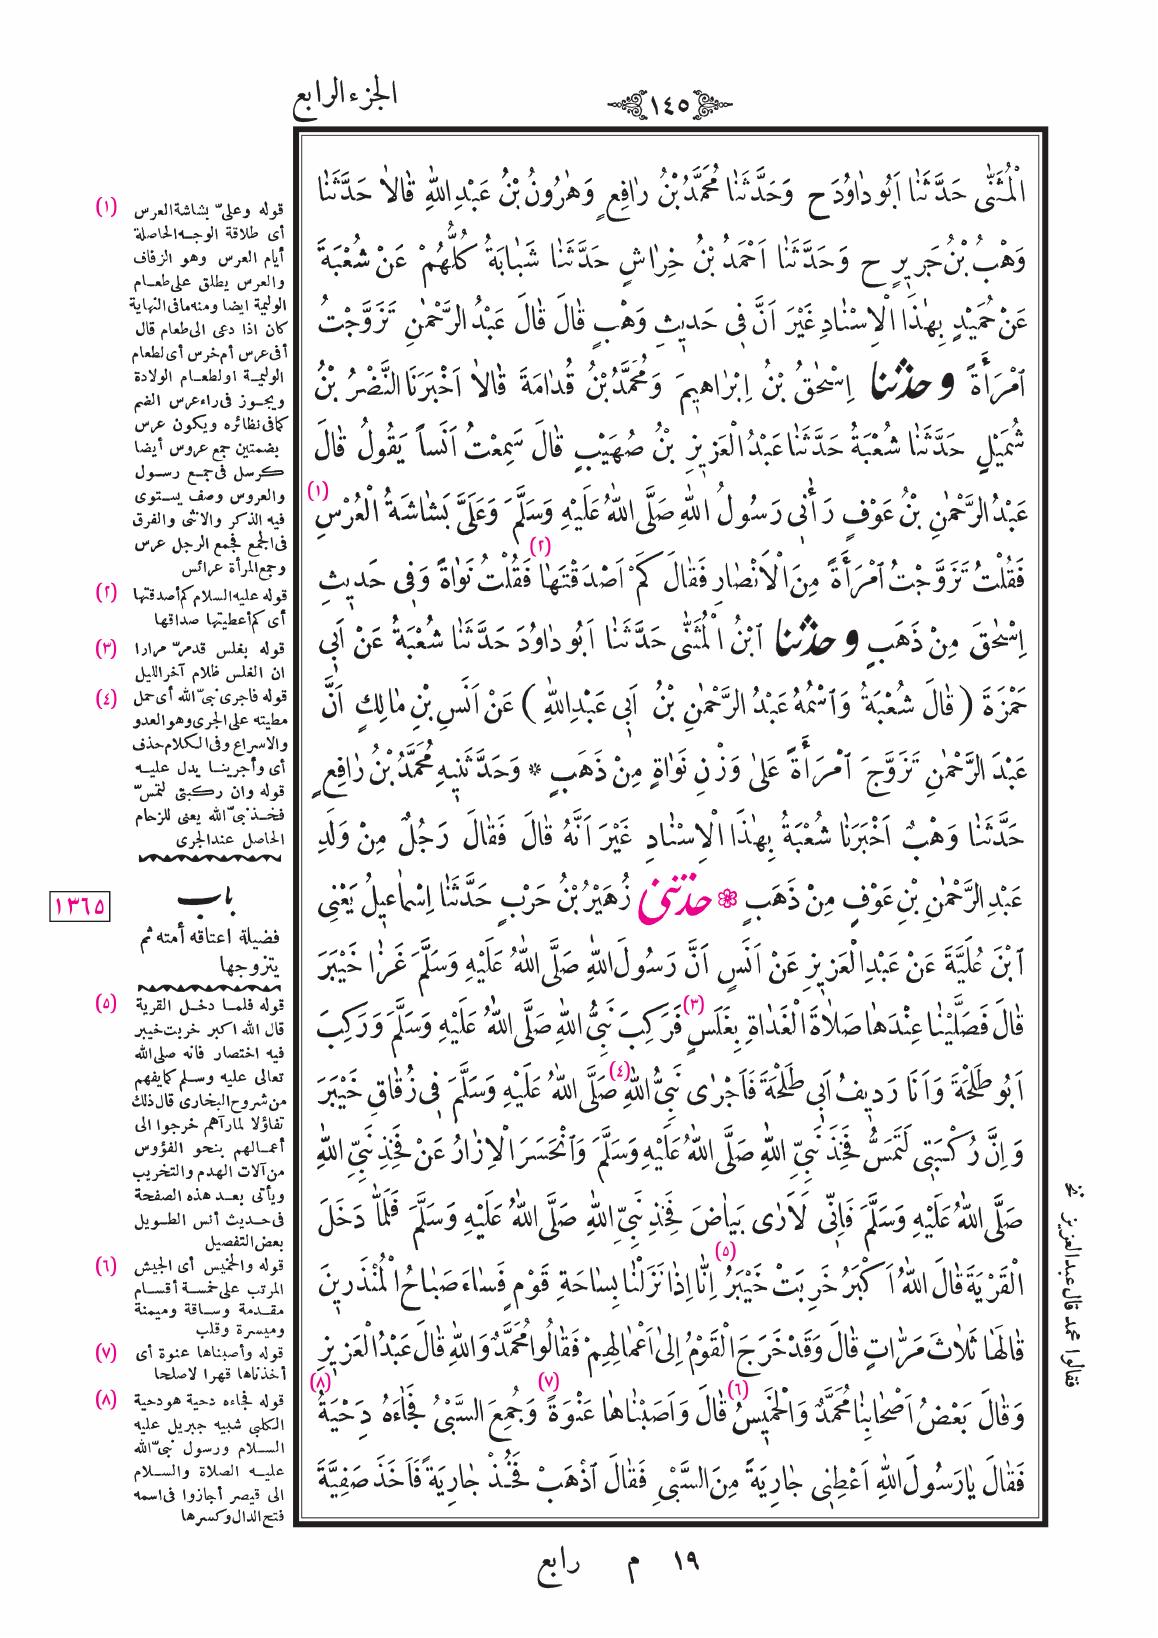 الجزء الرابع
١٤٥
الْمُثَنّٰى حَدَّثَنٰا اَبُو دٰاوُدَ ح وَحَدَّثَنٰا مُحَمَّدُ بْنُ رٰافِعٍ وَهٰرُونُ بْنُ عَبْدِ اللّٰهِ قٰالاٰ حَدَّثَنٰا
وَهْبُ بْنُ جَرِيرٍ ح وَحَدَّثَنٰا اَحْمَدُ بْنُ خِرٰاشٍ حَدَّثَنٰا شَبٰابَةُ كُلُّهُمْ عَنْ شُعْبَةَ
عَنْ حُمَيْدٍ بِهٰذَا الْاِسْنٰادِ غَيْرَ اَنَّ فِى حَدِيثِ وَهْبٍ قٰالَ قٰالَ عَبْدُ الرَّحْمٰنِ تَزَوَّجْتُ
اٰمْرَأَةً وحدثنا اِسْحٰقُ بْنُ اِبْرٰاهِيمَ وَمُحَمَّدُ بْنُ قُدٰامَةَ قٰالاٰ اَخْبَرَنَا النَّضْرُ بْنُ
شُمَيْلٍ حَدَّثَنٰا شُعْبَةُ حَدَّثَنٰا عَبْدُ الْعَزِيزِ بْنُ صُهَيْبٍ قٰالَ سَمِعْتُ اَنَساً يَقُولُ قٰالَ
عَبْدُ الرَّحْمٰنِ بْنُ عَوْفٍ رَأٰنِى رَسُولُ اللّٰهِ صَلَّى اللّٰهُ عَلَيْهِ وَسَلَّمَ وَعَلَىَّ بَشٰاشَةُ الْعُرْسِ (١)
فَقُلْتُ تَزَوَّجْتُ اٰمْرَأَةً مِنَ الْاَنْصٰارِ فَقٰالَ كَمْ اَصْدَقْتَهٰا (٢) فَقُلْتُ نَوٰاةً وَفِى حَدِيثِ
اِسْحٰقَ مِنْ ذَهَبٍ وحدثنا ابْنُ الْمُثَنّٰى حَدَّثَنٰا اَبُو دٰاوُدَ حَدَّثَنٰا شُعْبَةُ عَنْ اَبِى
حَمْزَةَ ( قٰالَ شُعْبَةُ وَاسْمُهُ عَبْدُ الرَّحْمٰنِ بْنُ اَبِى عَبْدِ اللّٰهِ ) عَنْ اَنَسِ بْنِ مٰالِكٍ اَنَّ
عَبْدَ الرَّحْمٰنِ تَزَوَّجَ امْرَأَةً عَلىٰ وَزْنِ نَوٰاةٍ مِنْ ذَهَبٍ * وَحَدَّثَنِيهِ مُحَمَّدُ بْنُ رٰافِعٍ
حَدَّثَنٰا وَهْبٌ اَخْبَرَنٰا شُعْبَةُ بِهٰذَا الْاِسْنٰادِ غَيْرَ اَنَّهُ قٰالَ فَقٰالَ رَجُلٌ مِنْ وَلَدِ
عَبْدِ الرَّحْمٰنِ بْنِ عَوْفٍ مِنْ ذَهَبٍ ❁ حدثنى زُهَيْرُ بْنُ حَرْبٍ حَدَّثَنٰا اِسْمٰاعِيلُ يَعْنِى
ابْنَ عُلَيَّةَ عَنْ عَبْدِ الْعَزِيزِ عَنْ اَنَسٍ اَنَّ رَسُولَ اللّٰهِ صَلَّى اللّٰهُ عَلَيْهِ وَسَلَّمَ غَزٰا خَيْبَرَ
قٰالَ فَصَلَّيْنٰا عِنْدَهٰا صَلاٰةَ الْغَدٰاةِ بِغَلَسٍ (٣) فَرَكِبَ نَبِىُّ اللّٰهِ صَلَّى اللّٰهُ عَلَيْهِ وَسَلَّمَ وَرَكِبَ
اَبُو طَلْحَةَ وَاَنَا رَدِيفُ اَبِى طَلْحَةَ فَاَجْرٰى نَبِىُّ اللّٰهِ (٤) صَلَّى اللّٰهُ عَلَيْهِ وَسَلَّمَ فِى زُقٰاقِ خَيْبَرَ
وَاِنَّ رُكْبَتِى لَتَمَسُّ فَخِذَ نَبِىِّ اللّٰهِ صَلَّى اللّٰهُ عَلَيْهِ وَسَلَّمَ وَانْحَسَرَ الْاِزٰارُ عَنْ فَخِذِ نَبِىِّ اللّٰهِ
صَلَّى اللّٰهُ عَلَيْهِ وَسَلَّمَ فَاِنِّى لَاَرٰى بَيٰاضَ فَخِذِ نَبِىِّ اللّٰهِ صَلَّى اللّٰهُ عَلَيْهِ وَسَلَّمَ فَلَمّٰا دَخَلَ
الْقَرْيَةَ قٰالَ اللّٰهُ اَكْبَرُ خَرِبَتْ خَيْبَرُ (٥) اِنّٰا اِذٰا نَزَلْنٰا بِسٰاحَةِ قَوْمٍ فَسٰاءَ صَبٰاحُ الْمُنْذَرِينَ
قٰالَهٰا ثَلاٰثَ مَرّٰاتٍ قٰالَ وَقَدْ خَرَجَ الْقَوْمُ اِلىٰ اَعْمٰالِهِمْ فَقٰالُوا مُحَمَّدٌ وَاللّٰهِ قٰالَ عَبْدُ الْعَزِيزِ
وَقٰالَ بَعْضُ اَصْحٰابِنٰا مُحَمَّدٌ وَالْخَمِيسُ (٦) قٰالَ وَاَصَبْنٰاهٰا عَنْوَةً (٧) وَجُمِعَ السَّبْىُ فَجٰاءَهُ دِحْيَةُ (٨)
فَقٰالَ يٰا رَسُولَ اللّٰهِ اَعْطِنِى جٰارِيَةً مِنَ السَّبْىِ فَقٰالَ اذْهَبْ فَخُذْ جٰارِيَةً فَاَخَذَ صَفِيَّةَ
(١) قوله وعلىّ بشاشة العرس
أى طلاقة الوجه الحاصلة
أيام العرس وهو الزفاف
والعرس يطلق على طعام
الوليمة ايضا ومنه مافى النهاية
كان اذا دعى الى طعام قال
أفى عرس أم خرس أى لطعام
الوليمة او لطعام الولادة
ويجوز فى راء عرس الضم
كمافى نظائره ويكون عرس
بضمتين جمع عروس أيضا
كرسل فى جمع رسول
والعروس وصف يستوى
فيه الذكر والانثى والفرق
فى الجمع فجمع الرجل عرس
وجمع المرأة عرائس
(٢) قوله عليه السلام كم أصدقتها
أى كم أعطيتها صداقها
(٣) قوله بغلس قدمرّ مرارا
ان الغلس ظلام آخر الليل
(٤) قوله فاجرى نبىّ الله أى حمل
مطيته على الجرى وهو العدو
والاسراع وفى الكلام حذف
أى وأجرينا يدل عليه
قوله وان ركبتى لتمسّ
فخذ نبىّ الله يعنى للزحام
الحاصل عند الجرى
١٣٦٥
باب
فضيلة اعتاقه أمته ثم
يتزوجها
(٥) قوله فلما دخل القرية
قال الله اكبر خربت خيبر
فيه اختصار فانه صلى الله
تعالى عليه وسلم كمايفهم
من شروح البخارى قال ذلك
تفاؤلا لمارآهم خرجوا الى
أعمالهم بنحو الفؤوس
من آلات الهدم والتخريب
ويأتى بعد هذه الصفحة
فى حديث أنس الطويل
بعض التفصيل
(٦) قوله والخميس أى الجيش
المرتب على خمسة أقسام
مقدمة وساقة وميمنة
وميسرة وقلب
(٧) قوله وأصبناها عنوة أى
أخذناها قهرا لاصلحا
(٨) قوله فجاءه دحية هو دحية
الكلبى شبيه جبريل عليه
السلام ورسول نبىّ الله
عليه الصلاة والسلام
الى قيصر أجازوا فى اسمه
فتح الدال وكسرها
فقالوا محمد قال عبدالعزيز نخ
١٩ م رابع